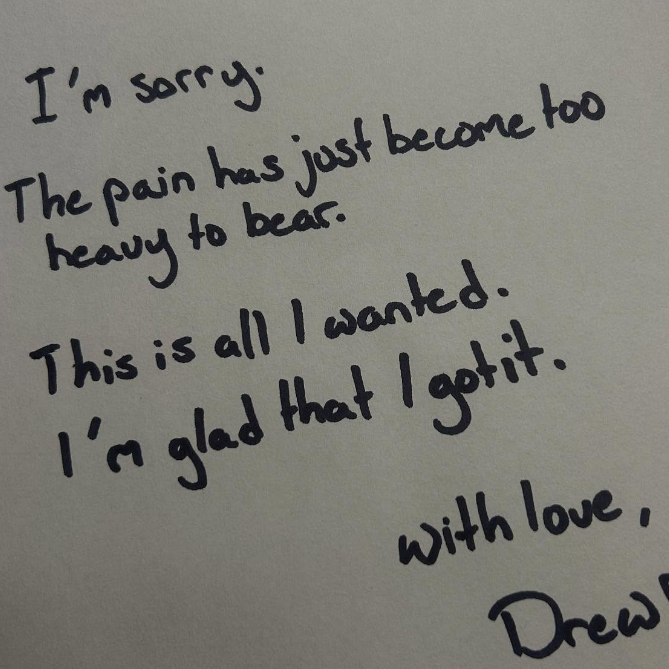 I'm sorry.
The pain has just become too
heavy to bear.
This is all I wanted.
I'm glad that I got it.
with love,
Drew